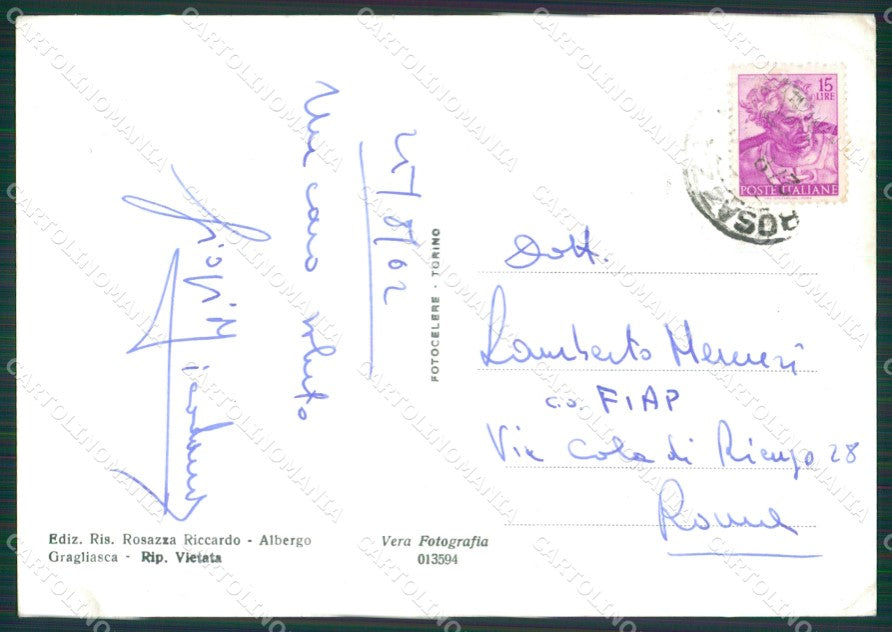 15
LIRE
POSTE ITALIANE
ROSAZZA
15/8/62
Un caro saluto
FOTOCELERE - TORINO
Dott.
Lamberto
c.o. FIAP
Via Cola di Rienzo 28
Roma
Ediz. Ris. Rosazza Riccardo - Albergo
Gragliasca - Rip. Vietata
Vera Fotografia
013594
CARTOLINOMANIA